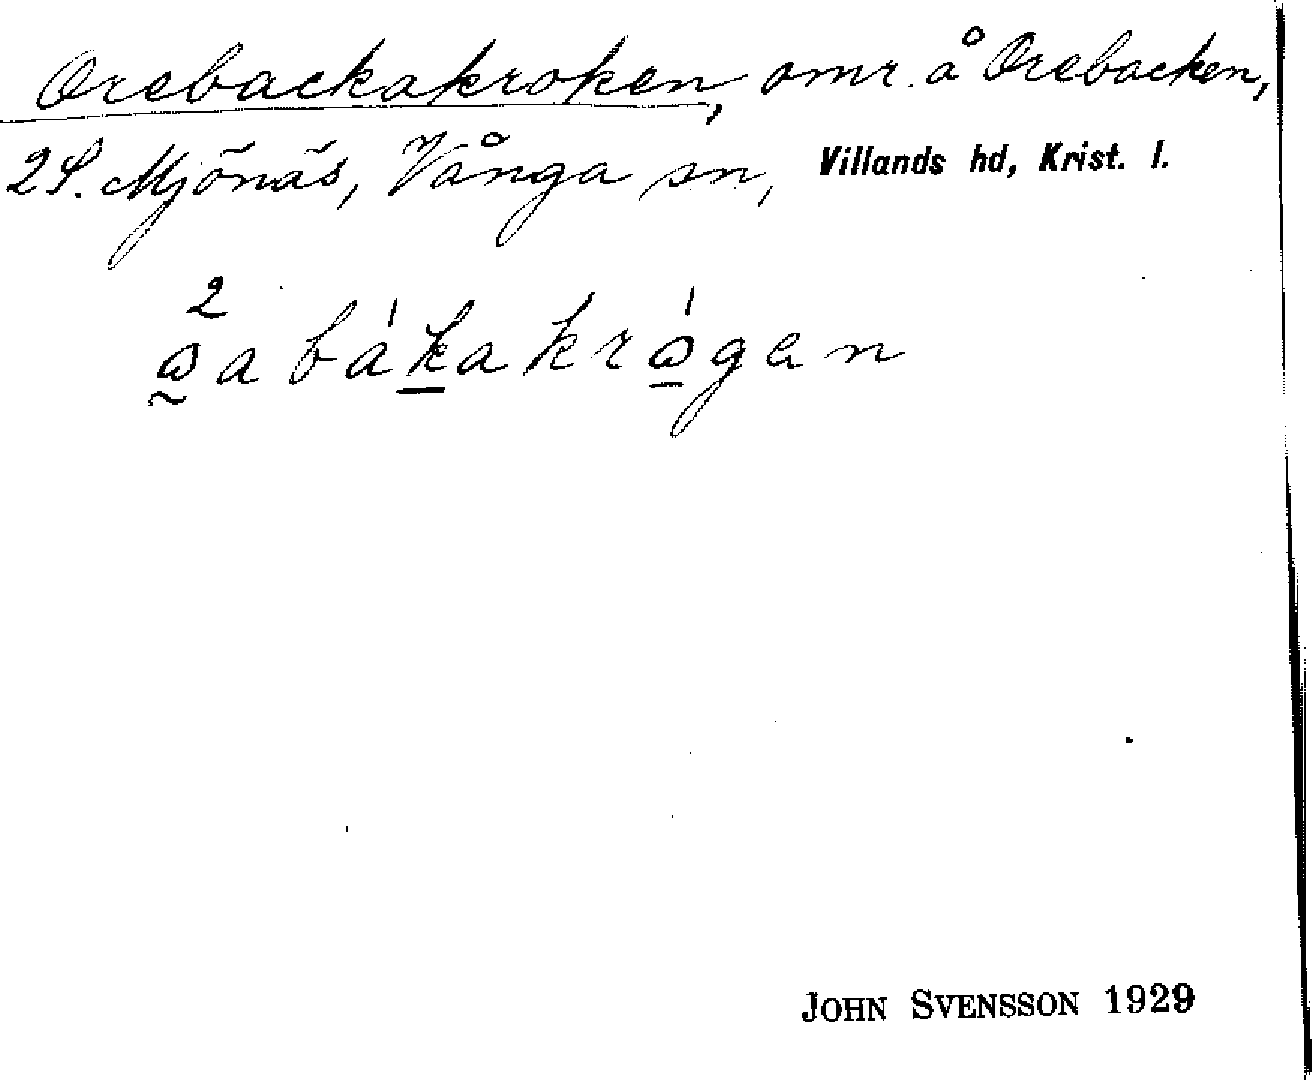 Orebackakroken, omr. å Orebacken,
2 S. Mjönäs, Vånga sn, Villands hd, Krist. l.
JOHN SVENSSON 1929